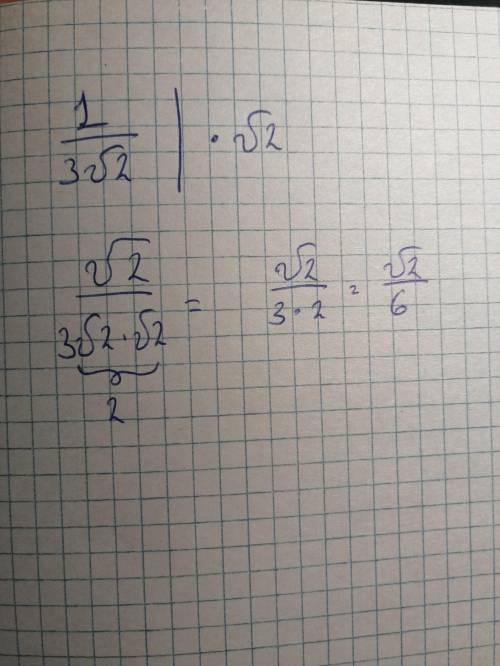 1/(3√2) | · √2
√2/(3√2·√2) = √2/(3·2) = √2/6
2